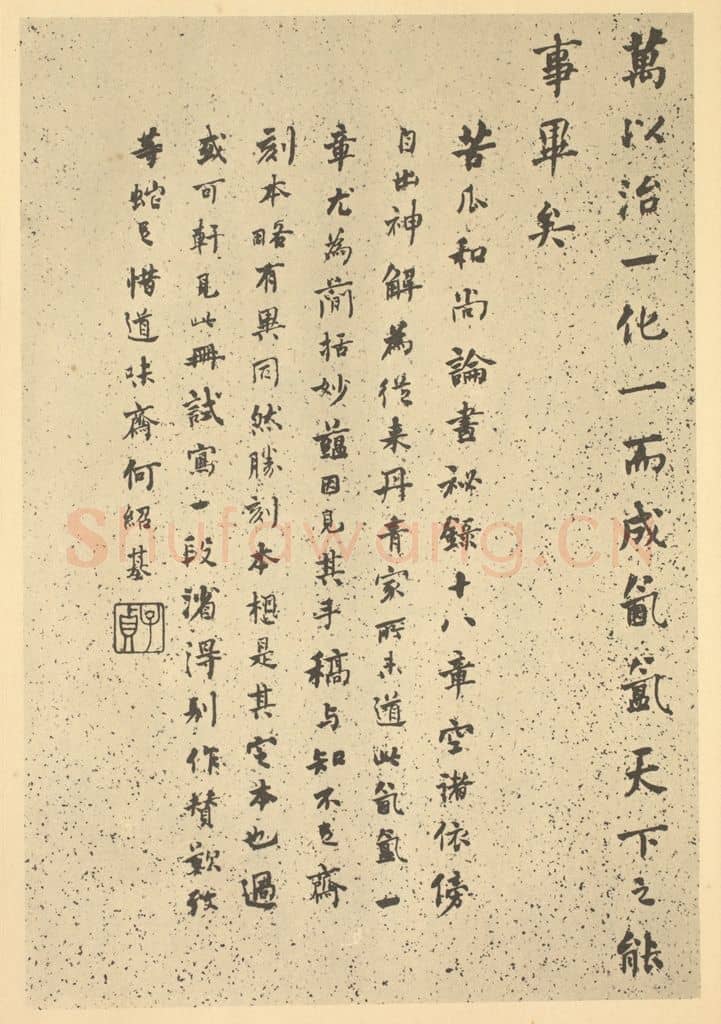 萬以治一化一而成氤氳天下之能
事畢矣
苦瓜和尚論畫祕錄十八章空諸依傍
自出神解為從来丹青家所未道此氤氳一
章尤為簡括妙蘊因見其手稿与知不足齋
刻本略有異同然勝刻本想是其定本也過
或可軒見此冊試寫一段渻得別作贊歎致
等蛇足惜道味齋何紹基
子貞
Shufawang.CN